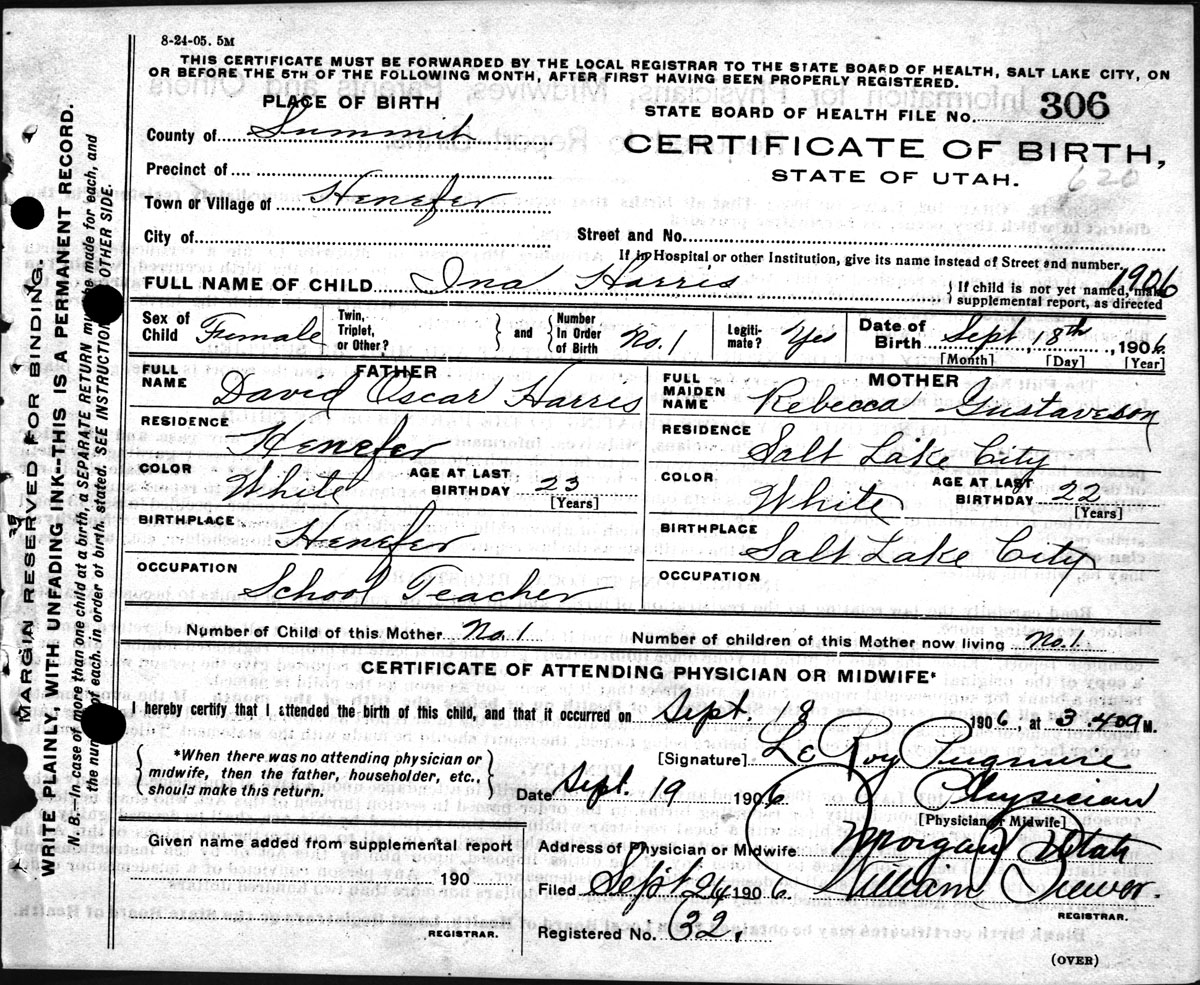 8-24-05. 5M
THIS CERTIFICATE MUST BE FORWARDED BY THE LOCAL REGISTRAR TO THE STATE BOARD OF HEALTH, SALT LAKE CITY, ON
OR BEFORE THE 5TH OF THE FOLLOWING MONTH, AFTER FIRST HAVING BEEN PROPERLY REGISTERED.
PLACE OF BIRTH
STATE BOARD OF HEALTH FILE No. 306
County of Summit
CERTIFICATE OF BIRTH,
STATE OF UTAH.
620
Precinct of
Town or Village of Henefer
City of
Street and No.
If in Hospital or other Institution, give its name instead of Street and number.
1906
FULL NAME OF CHILD Ina Harris
If child is not yet named, make
supplemental report, as directed
Sex of Child Female
Twin, Triplet, or Other?
and
Number In Order of Birth No. 1
Legitimate? Yes
Date of Birth Sept, 18th, 1906
[Month] [Day] [Year]
FATHER
FULL NAME David Oscar Harris
RESIDENCE Henefer
COLOR White
AGE AT LAST BIRTHDAY 23
[Years]
BIRTHPLACE Henefer
OCCUPATION School Teacher
MOTHER
FULL MAIDEN NAME Rebecca Gustaveson
RESIDENCE Salt Lake City
COLOR White
AGE AT LAST BIRTHDAY 22
[Years]
BIRTHPLACE Salt Lake City
OCCUPATION
Number of Child of this Mother No. 1
Number of children of this Mother now living No. 1.
CERTIFICATE OF ATTENDING PHYSICIAN OR MIDWIFE*
I hereby certify that I attended the birth of this child, and that it occurred on Sept. 18 1906, at 3.40 M.
*When there was no attending physician or
midwife, then the father, householder, etc.,
should make this return.
[Signature] Le Roy Pugmire
Date Sept. 19 1906
Physician
[Physician or Midwife]
Given name added from supplemental report
190
REGISTRAR.
Address of Physician or Midwife Morgan Utah
Filed Sept. 24 1906. William Brewer.
REGISTRAR.
Registered No. 32.
(OVER)
MARGIN RESERVED FOR BINDING.
WRITE PLAINLY, WITH UNFADING INK--THIS IS A PERMANENT RECORD.
N. B.--In case of more than one child at a birth, a SEPARATE RETURN must be made for each, and
the number of each, in order of birth, stated. SEE INSTRUCTIONS OTHER SIDE.